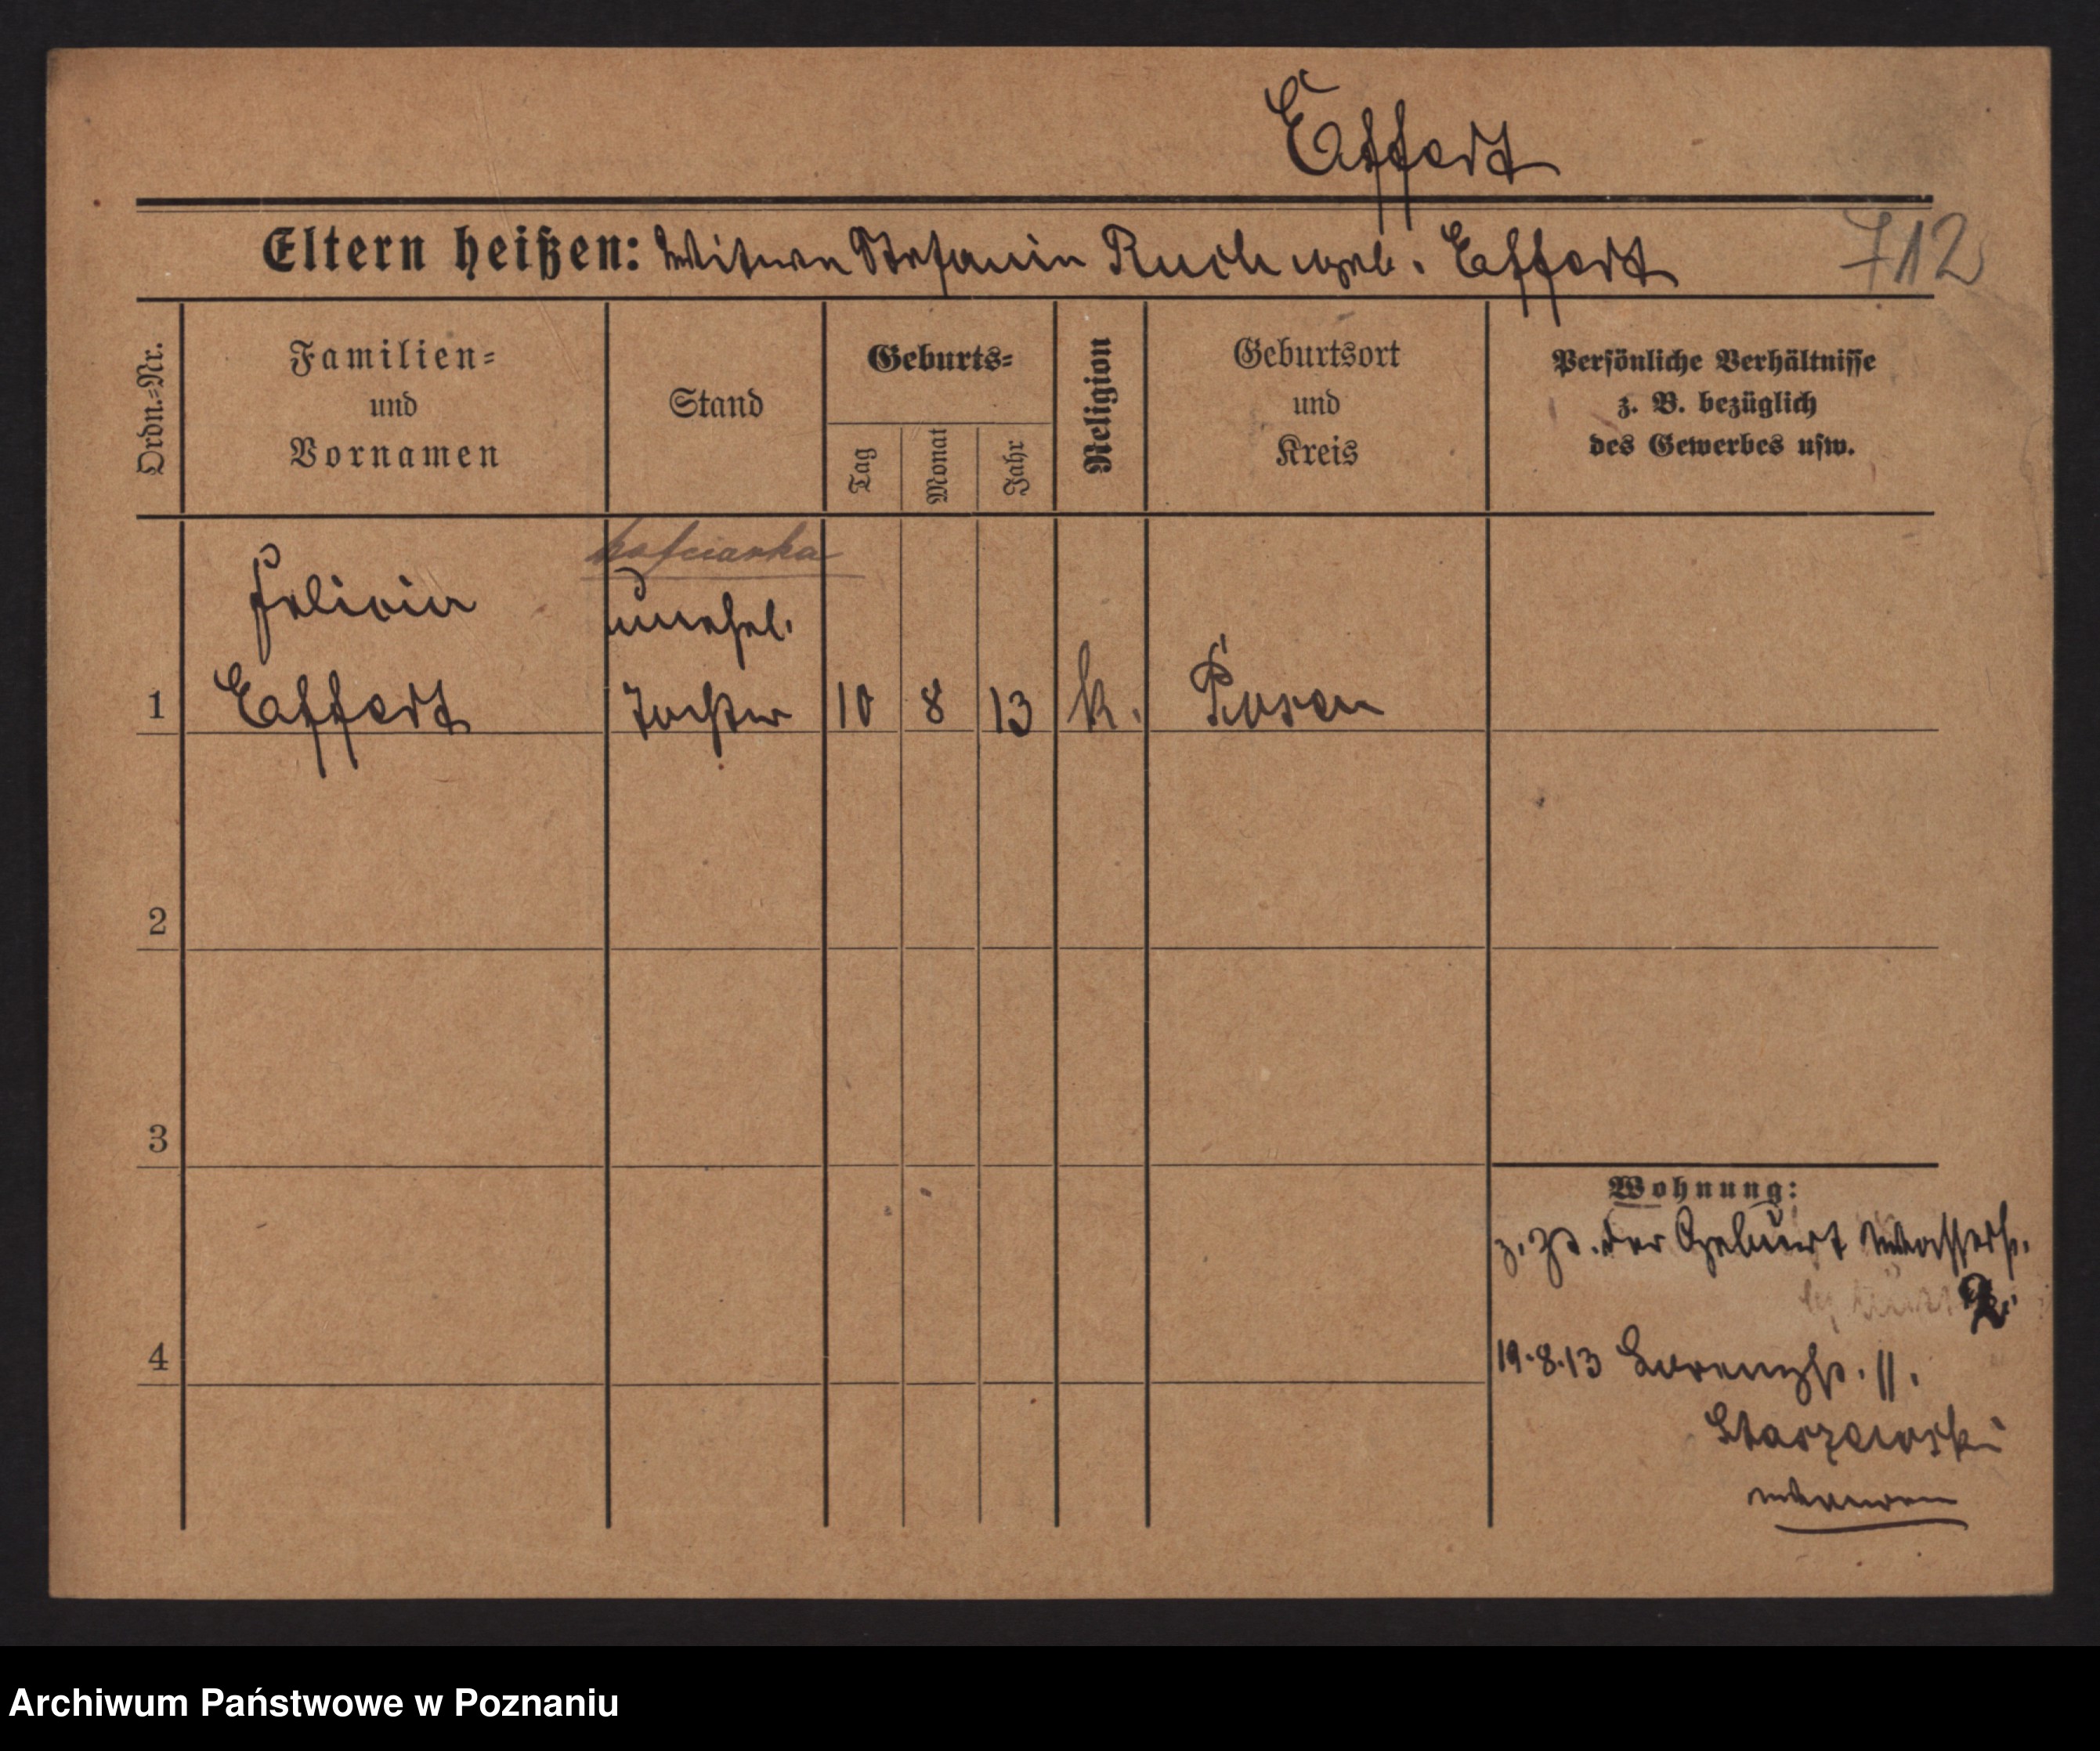 Effert
Eltern heißen: Witwe Stefania Ruch geb. Effert
712
Ordn.-Nr.
Familien-
und
Vornamen
Stand
Geburts-
Tag
Monat
Jahr
Religion
Geburtsort
und
Kreis
Persönliche Verhältnisse
z. B. bezüglich
des Gewerbes usw.
hafciarka
Felicia
unehel.
1 Effert Tochter 10 8 13 k. Posen
2
3
4
Wohnung:
z. Zt. der Geburt Wasserstr.
2.
19.8.13 Lorenzstr. 11.
Starzewski
Archiwum Państwowe w Poznaniu